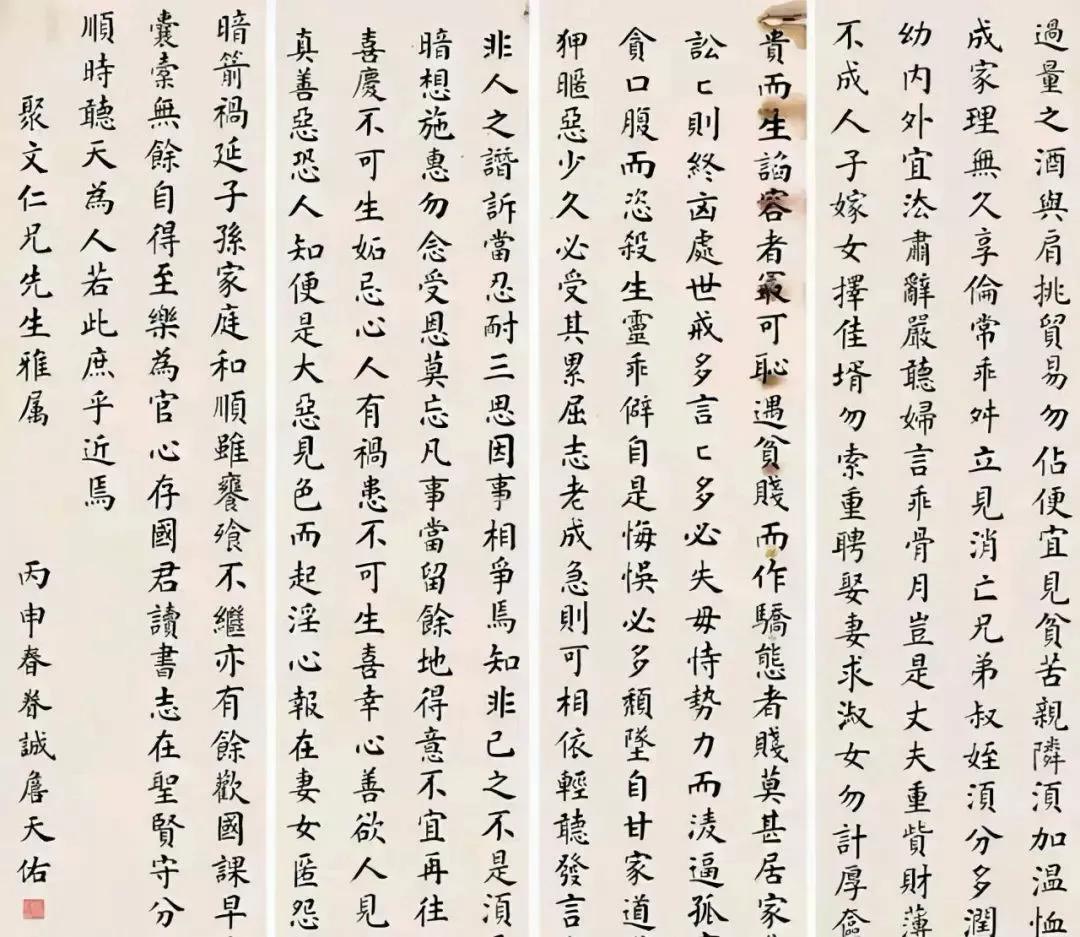 過量之酒與肩挑貿易勿佔便宜見貧苦親隣湏加溫恤
成家理無久享倫常乖舛立見消亡兄弟叔姪湏分多潤
幼內外宜法肅辭嚴聽婦言乖骨月豈是丈夫重貲財薄
不成人子嫁女擇佳壻勿索重聘娶妻求淑女勿計厚奩
貴而生諂容者㝡可恥遇貧賤而作驕態者賤莫甚居家
訟匕則終凶處世戒多言匕多必失毋恃勢力而淩逼孤
貪口腹而恣殺生靈乖僻自是悔悞必多頹墜自甘家道
狎暱惡少久必受其累屈志老成急則可相依輕聽發言
非人之譖訴當忍耐三思因事相爭焉知非己之不是湏
暗想施惠勿念受恩莫忘凡事當留餘地得意不宜再往
喜慶不可生妬忌心人有禍患不可生喜幸心善欲人見
真善惡恐人知便是大惡見色而起淫心報在妻女匿怨
暗箭禍延子孫家庭和順雖饔飧不繼亦有餘歡國課早
囊橐無餘自得至樂為官心存國君讀書志在聖賢守分
順時聽天為人若此庶乎近焉
聚文仁兄先生雅属
丙申春眷誠詹天佑